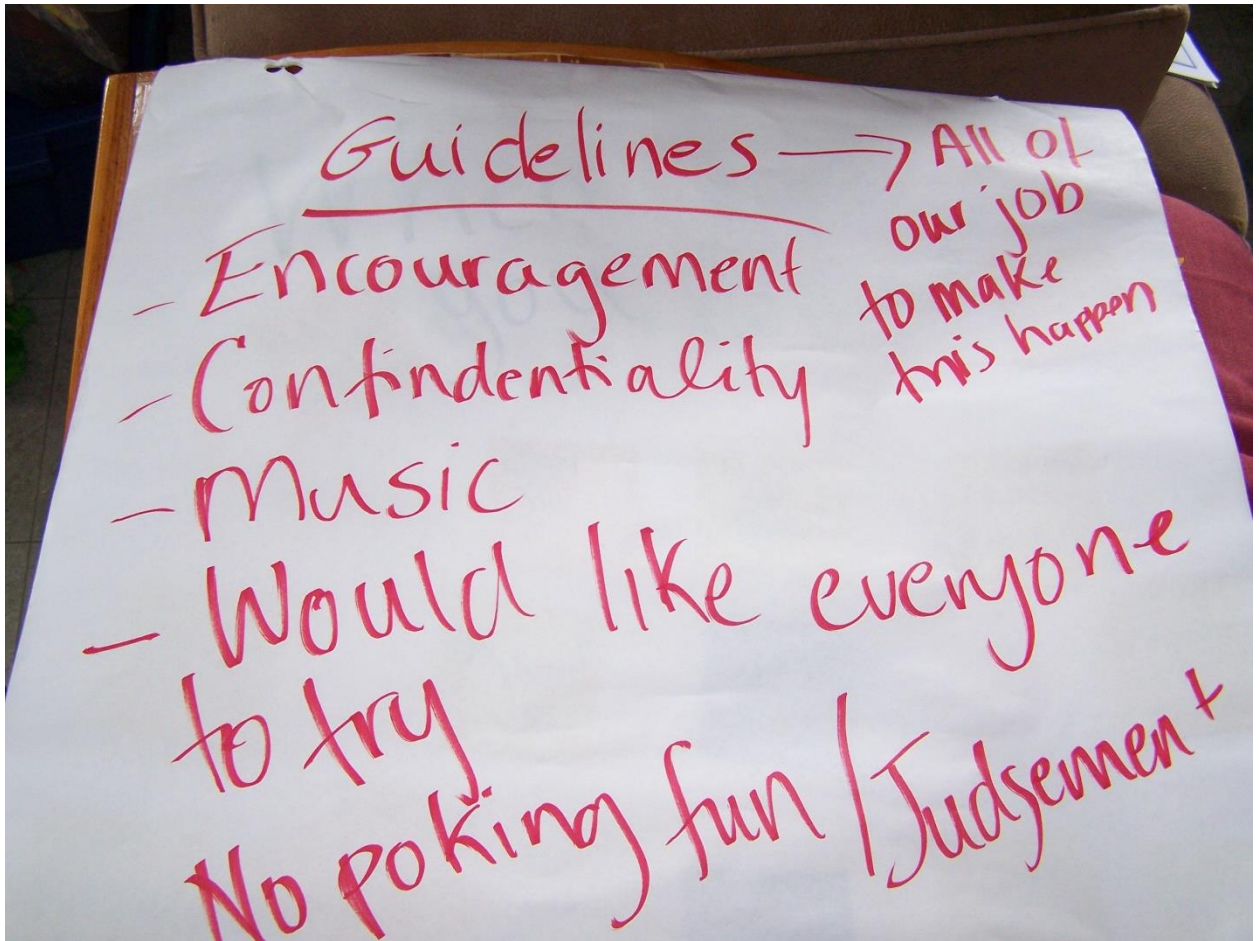 Guidelines → All of
our job
to make
this happen
- Encouragement
- Confindentiality
- Music
- Would like everyone
to try
No poking fun / Judgement